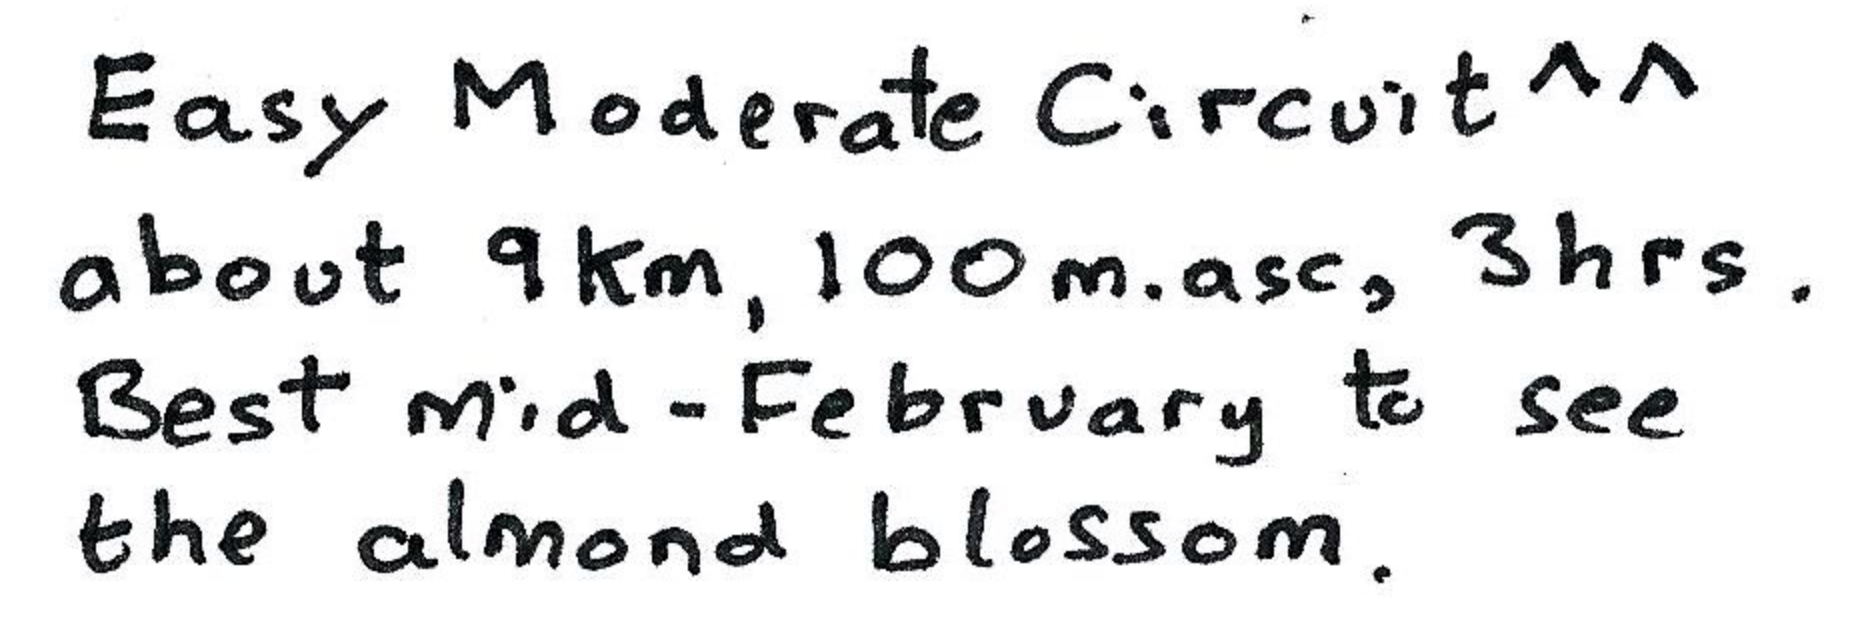 Easy Moderate Circuit ^^
about 9km, 100m.asc, 3hrs.
Best mid-February to see
the almond blossom.